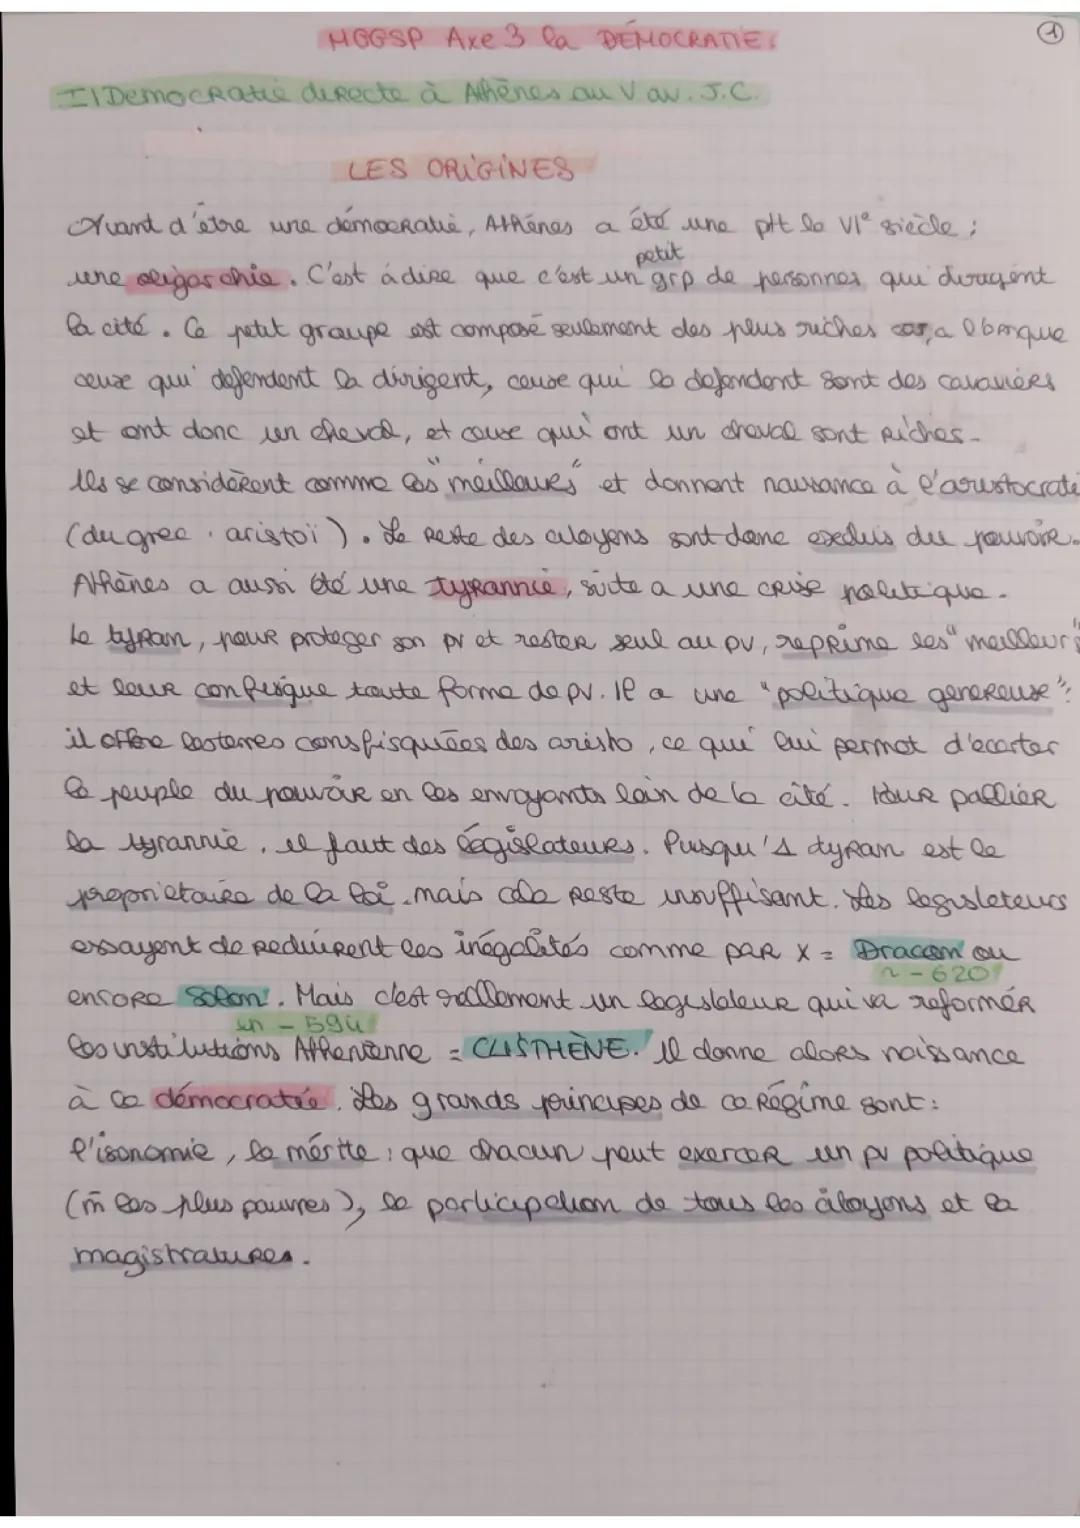 HGGSP Axe 3 la DÉMOCRATIE.
1
I | Democratie directe à Athènes au V av. J.C.
LES ORIGINES
Avant d'être une démocratie, Athènes a été une pdt le VIe siècle ;
une oligarchie. C'est à dire que c'est un petit grp de personnes qui dirigent
la cité. Ce petit groupe est composé seulement des plus riches car, a l'époque
ceux qui défendent la dirigent, ceux qui la defendent sont des cavaliers
et ont donc un cheval, et ceux qui ont un cheval sont riches.
Ils se considèrent comme les "meilleurs" et donnent naissance à l'aristocratie
(du grec : aristoï). Le reste des citoyens sont donc exclus du pouvoir.
Athènes a aussi été une tyrannie, suite a une crise politique.
Le tyran, pour proteger son pv et rester seul au pv, reprime les "meilleurs"
et leur confisque toute forme de pv. Il a une "politique genereuse":
il offre les terres consfisquées des aristo, ce qui lui permet d'ecarter
le peuple du pouvoir en les envoyants loin de la cité. Pour pallier
la tyrannie, il faut des législateurs. Pusqu'1 tyran est le
proprietaire de la loi. mais cela reste insuffisant. Les legisleteurs
essayent de reduirent les inégalités comme par x = Dracon ou
~ - 620
encore Solon. Mais c'est réellement un legislateur qui va reformér
en - 594
les institutions Athenienne = CLISTHÈNE. Il donne alors naissance
à la démocratie. Les grands principes de ce régime sont :
l'isonomie, le mérite : que chacun peut exercer un pv politique
(m̄ les plus pauvres), la participation de tous les citoyens et la
magistratures.